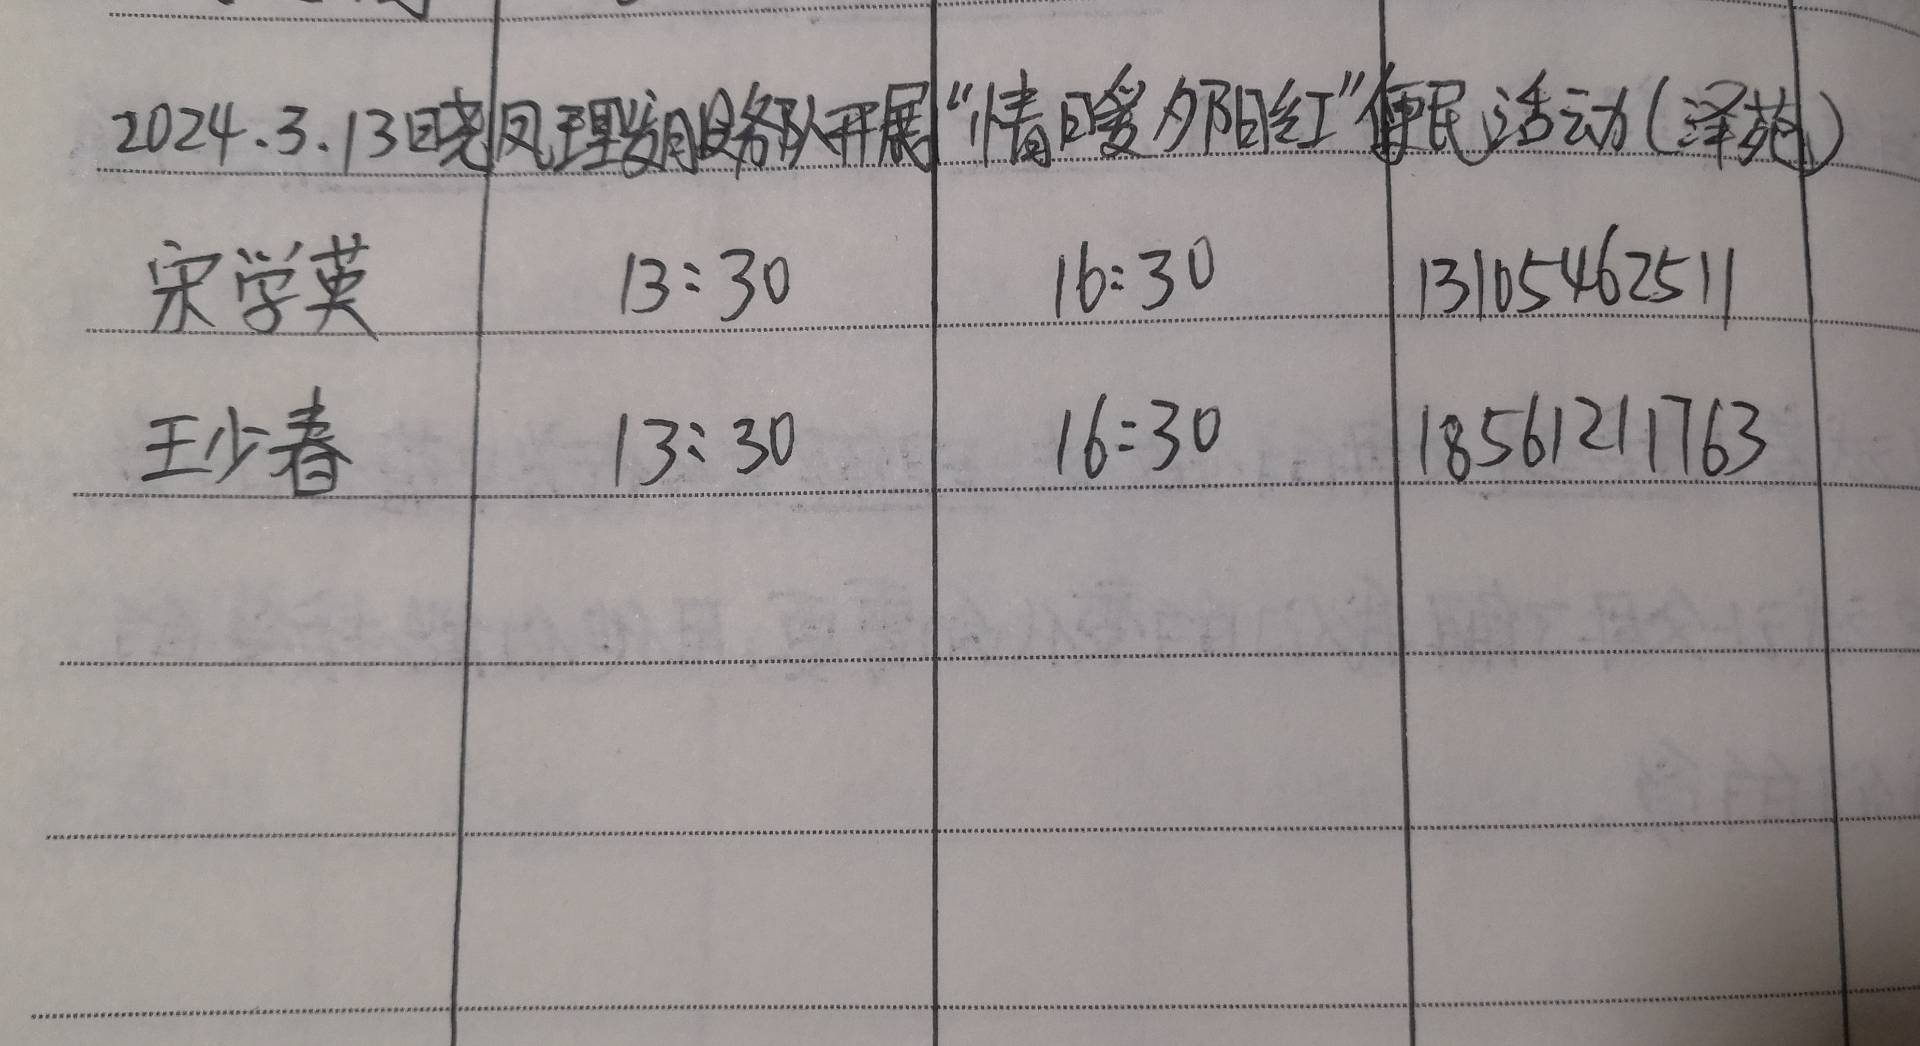 2024.3.13晓凤理发服务队开展“情暖夕阳红”便民活动(泽苑)
宋学英 13:30 16:30 13105462511
王少春 13:30 16:30 18561211763